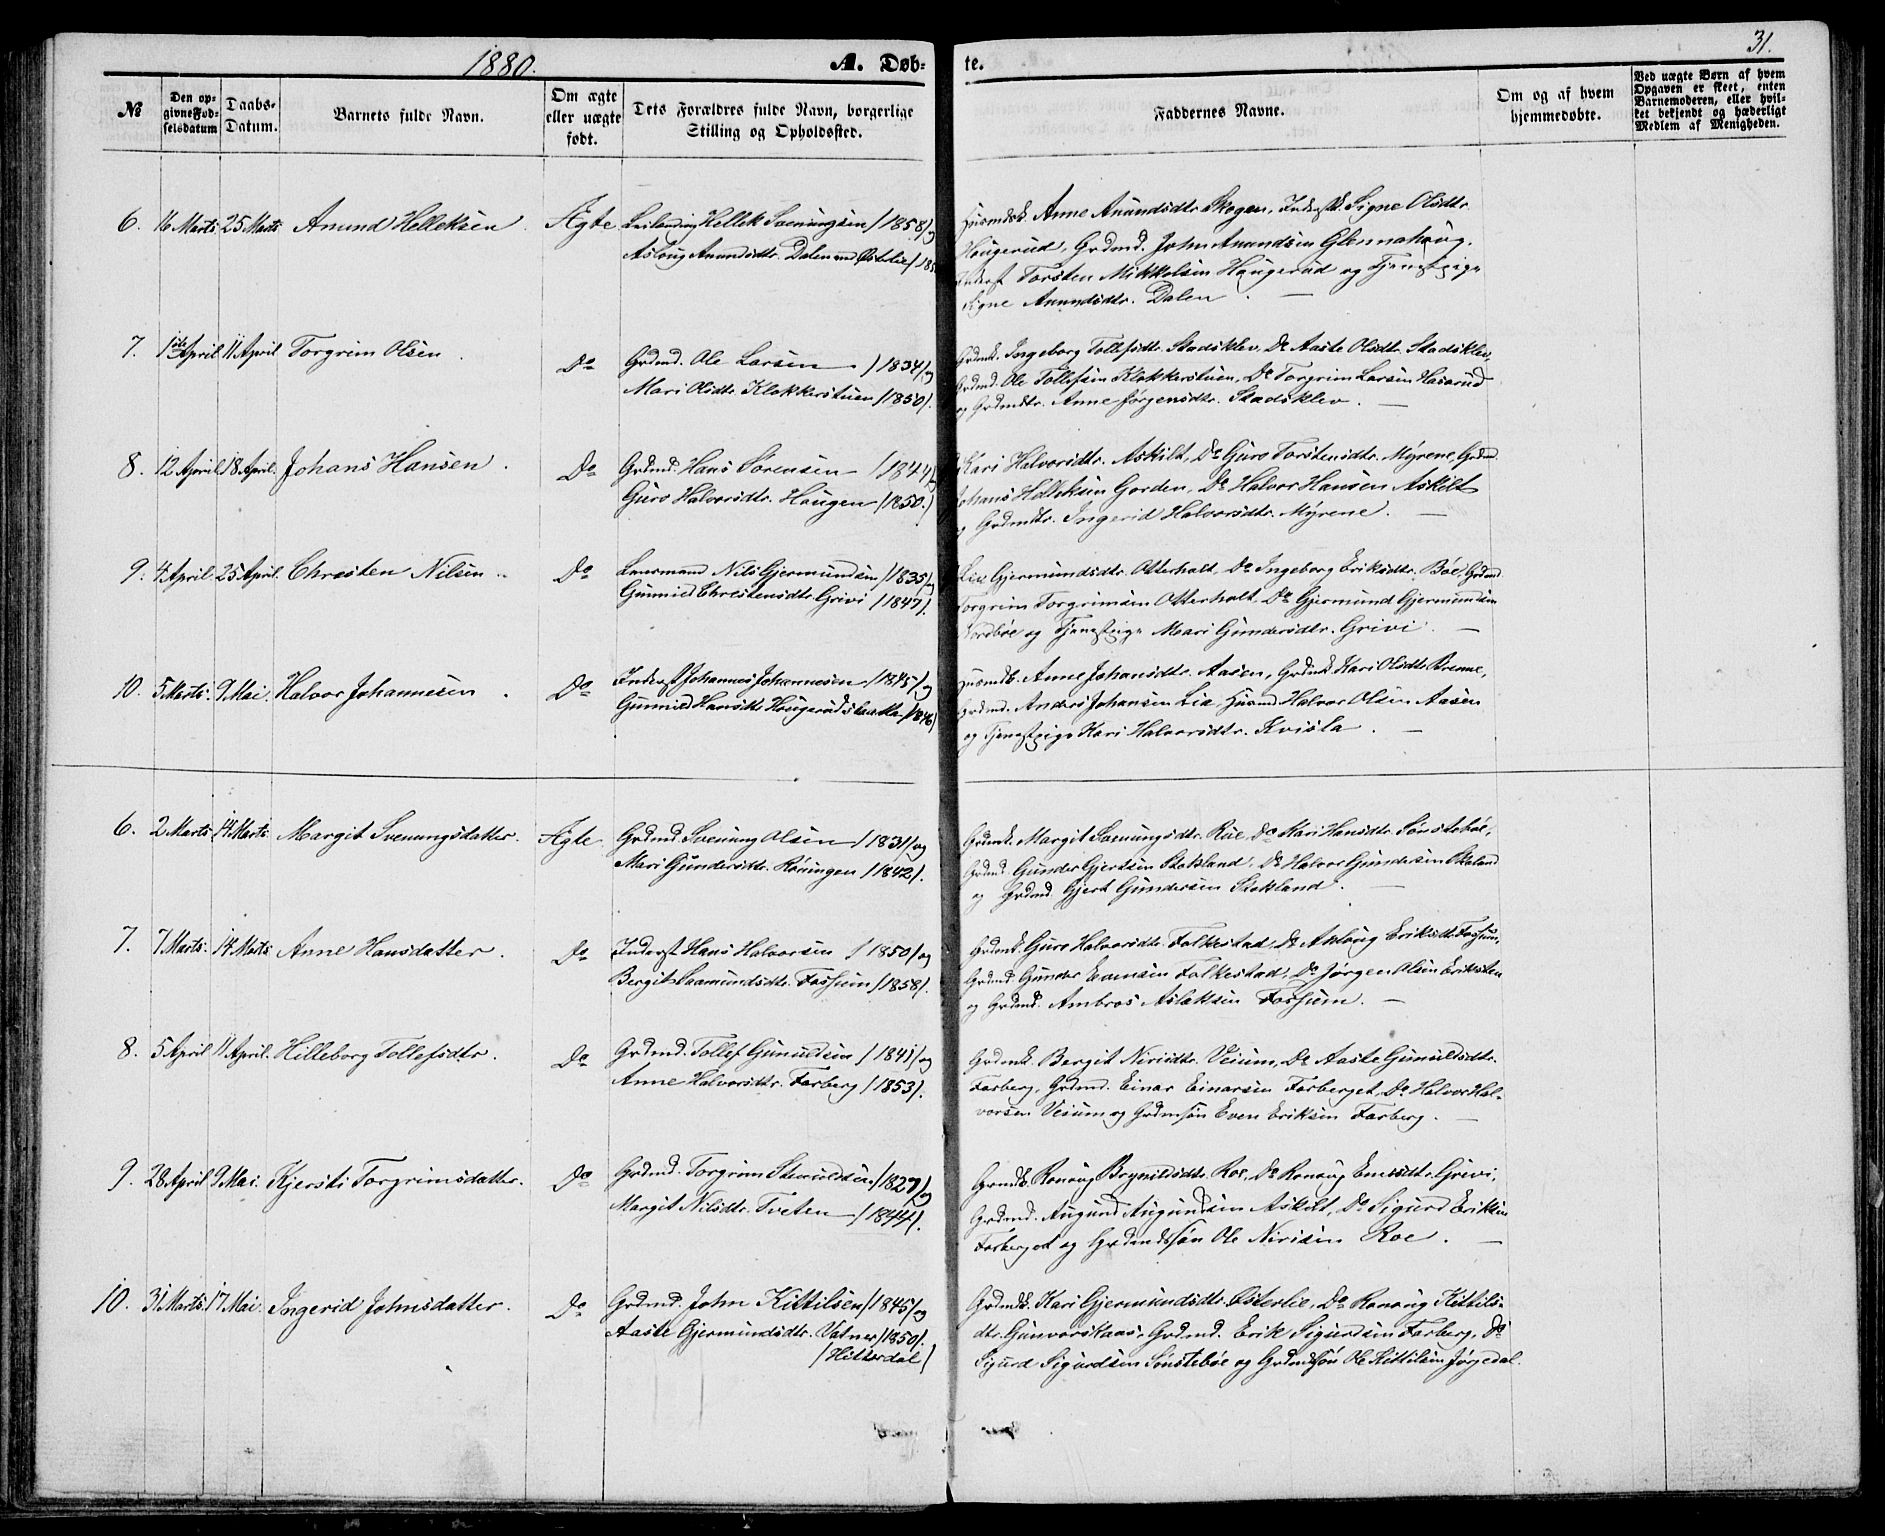 1880.
A. Døb-
te.
31.
№
Den op-
givne Fød-
selsdatum
Daabs-
Datum.
Barnets fulde Navn.
Om ægte
eller uægte
født.
Dets Forældres fulde Navn, borgerlige
Stilling og Opholdssted.
Faddernes Navne.
Om og af hvem
hjemmedøbte.
Ved uægte Børn af hvem
Opgaven er skeet, enten
Barnemoderen, eller hvil-
ket bekjendt og hæderligt
Medlem af Menigheden.
6. 16 Marts 25 Marts Anund Helleksen. Ægte
Leilending Hellek Svenungsen /1858/ og
Aslaug Anundsdtr. Dalen
Husmdk. Anne Anundsdtr. Skogen, Inderstk. Signe Olsdtr.
Hougerud, Grdmd. John Anundsen Glennahoug.
Inderst Torsten Mikkelsen Haugerud og Tjenestpige
Signe Anundsdtr. Dalen. —
7. 1ste April 11 April Torgrim Olsen. Do
Grdmd. Ole Larsen /1834/ og
Mari Olsdtr. Klokkerstuen /1850/.
Grdmdk. Ingeborg Tollefsdtr. Stadsklev, Do Aaste Olsdtr. Stadsklev,
Grdmd. Ole Tollefsen Klokkerstuen, Do Torgrim Larsen Hasarud
og Grdmdtr. Anne Jørgensdtr. Stadsklev. —
8. 12 April 18 April. Johans Hansen. Do
Grdmd. Hans Sørensen /1844/ og
Guro Halvorsdtr. Haugen /1850./
Kari Halvorsdtr. Askilt, Do Guro Torstensdtr. Myrene, Grdmd.
Johans Helleksen Gorden, Do Halvor Hansen Askilt
og Grdmdtr. Ingerid Halvorsdtr. Myrene. —
9. 4 April 25 April. Christen Nilsen. Do
Lensmand Nils Gjermundsen /1835/ og
Gunnild Christensdtr. Grivi /1847/.
Liv Gjermundsdtr. Otterholt, Do Ingeborg Eriksdtr. Bøe, Grdmd.
Torgrim Torgrimsen Otterholt, Do Gjermund Gjermundsen
Nordbøe og Tjenestpige Mari Gundersdtr. Grivi. —
10. 5 Marts. 9 Mai. Halvor Johannesen. Do
Inderst Johannes Johannesen /1845/ og
Gunnild Hansdtr. Hougerudsbakka /1846/
Husmdk. Anne Johansdtr. Aasen, Grdmdk. Kari Olsdtr. Brenne,
Grdmd. Anders Johansen Lie, Husmd. Halvor Olsen Aasen
og Tjenestpige Kari Halvorsdtr. Kvisla. —
6. 2 Marts 14 Marts Margit Svenungsdatter. Ægte
Grdmd. Svenung Olsen /1831/ og
Mari Gundersdtr. Røningen /1842/.
Grdmdk. Margit Svenungsdtr. Roe, Do Kari Hansdtr. Sønstebøe,
Grdmd. Gunder Gjertsen Stokland, Do Halvor Gundersen Stokland
og Grdmd. Gjert Gundersen Stokland. —
7. 7 Marts. 14 Marts Anne Hansdatter. Do
Inderst Hans Halvorsen /1850/ og
Bergit Saamundsdtr. Fossum /1858/.
Grdmdk. Guro Halvorsdtr. Folkestad, Do Aslaug Eriksdtr. Fossum,
Grdmd. Gunder Evensen Folkestad, Do Jørgen Olsen Eriksten
og Grdmd. Ambros Aslaksen Fossum. —
8. 5 April 11 April. Hilleborg Tollefsdtr. Do
Grdmd. Tollef Gunuldsen /1841/ og
Anne Halvorsdtr. Farberg /1853/.
Grdmdk. Bergit Nirisdtr. Veium, Do Aaste Gunuldsdtr.
Farberg, Grdmd. Einar Einarsen Farberget, Do Halvor Hal-
vorsen Veium og Grdmdsøn Even Eriksen Farberg. —
9. 28 April 9 Mai. Kjersti Torgrimsdatter. Do
Grdmd. Torgrim Stenuldsen /1827/ og
Margit Nilsdtr. Tveten /1844/.
Grdmdk. Ronoug Brynildsdtr. Roe, Do Ronoug Evensdtr. Grivi,
Grdmd. Augund Augundsen Askilt, Do Sigurd Eriksen
Farberget og Grdmdssøn Ole Nirisen Roe. —
10. 31 Marts. 17 Mai. Ingerid Johnsdatter. Do
Grdmd. John Kittilsen /1845/ og
Aaste Gjermundsdtr. Vatnar /1850/.
/Hitterdal/
Grdmdk. Kari Gjermundsdtr. Østerlie, Do Ronoug Kittils-
dtr. Gunvorskaas, Grdmd. Erik Sigurdsen Farberg, Do
Sigurd Sigurdsen Sønstebøe og Grdmdsøn Ole Kittilsen Jørjedal.